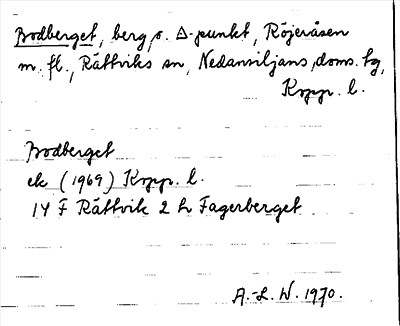 Bodberget, berg o. Δ-punkt, Röjeråsen
m. fl., Rättviks sn, Nedansiljans doms. tg,
Kopp. l.
Bodberget
ek (1969) Kopp. l.
14 F Rättvik 2 h Fagerberget
A.-L. W. 1970.